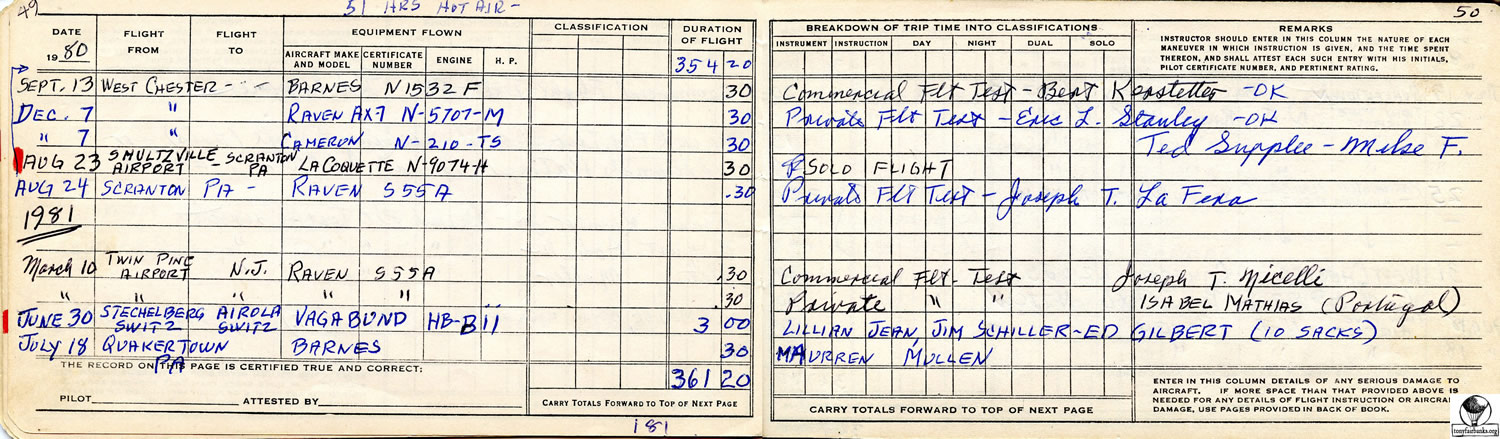 49
51 HRS HOT AIR -
DATE
1980
FLIGHT FROM
FLIGHT TO
EQUIPMENT FLOWN
AIRCRAFT MAKE AND MODEL
CERTIFICATE NUMBER
ENGINE
H. P.
CLASSIFICATION
DURATION OF FLIGHT
354 20
SEPT. 13 WEST CHESTER - - - BARNES N1532F 30
DEC. 7 " RAVEN AX7 N-5707-M 30
" 7 " CAMERON N-210-TS 30
AUG 23 SMULTZVILLE AIRPORT - SCRANTON PA LACOQUETTE N-9074-H 30
AUG 24 SCRANTON PA - RAVEN S55A .30
1981
March 10 TWIN PINE AIRPORT N.J. RAVEN S55A .30
" " " " " .30
JUNE 30 STECHELBERG SWITZ AIROLA SWITZ VAGABUND HB-BII 3 00
JULY 18 QUAKERTOWN PA BARNES 30
THE RECORD ON THIS PAGE IS CERTIFIED TRUE AND CORRECT:
361 20
PILOT ATTESTED BY
CARRY TOTALS FORWARD TO TOP OF NEXT PAGE
181
50
BREAKDOWN OF TRIP TIME INTO CLASSIFICATIONS
INSTRUMENT INSTRUCTION DAY NIGHT DUAL SOLO
REMARKS
INSTRUCTOR SHOULD ENTER IN THIS COLUMN THE NATURE OF EACH
MANEUVER IN WHICH INSTRUCTION IS GIVEN, AND THE TIME SPENT
THEREON, AND SHALL ATTEST EACH SUCH ENTRY WITH HIS INITIALS,
PILOT CERTIFICATE NUMBER, AND PERTINENT RATING.
Commercial Flt Test - Bert Kerstetter - OK
Private Flt Test - Eric L. Stanley - OK
Ted Supplee - Mike F.
SOLO FLIGHT
Private Flt Test - Joseph T. La Fera
Commercial Flt- Test Joseph T. Micelli
Private " " ISABEL MATHIAS (Portugal)
LILLIAN JEAN, JIM SCHILLER - ED GILBERT (10 SACKS)
MAURREN MULLEN
CARRY TOTALS FORWARD TO TOP OF NEXT PAGE
ENTER IN THIS COLUMN DETAILS OF ANY SERIOUS DAMAGE TO
AIRCRAFT. IF MORE SPACE THAN THAT PROVIDED ABOVE IS
NEEDED FOR ANY DETAILS OF FLIGHT INSTRUCTION OR AIRCRAF
DAMAGE, USE PAGES PROVIDED IN BACK OF BOOK.
tonyfairbanks.org